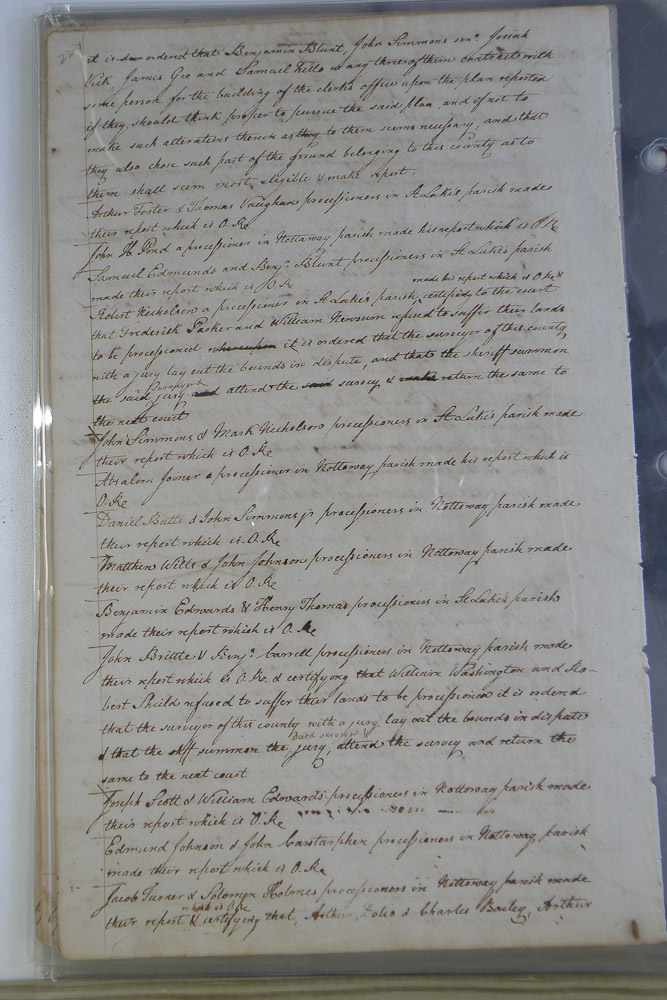 it is ordered that Benjamin Blunt, John Simmons senr. Josiah
Vick James Gee and Samuel Kello or any three of them contract with
some person for the building of the clerks office upon the plan reported
if they should think proper to pursue the said plan, and if not to
make such alterations therein as they to them seems necessary, and that
they also chose such part of the ground belonging to this county as to
them shall seem most eligible & make report.
Arthur Foster & Thomas Vaughan processioners in St Luke's parish made
their report which is O. Re
John H. Pond a processioner in Nottoway parish made his report which is O Re
Samuel Edmunds and Benjn. Blunt processioners in St Luke's parish
made their report which is O Re
made his report which is O. Re &
Robert Nicholson a processioner in St Luke's parish, certifiedg to the court
that Frederick Parker and William Newsum refused to suffer their lands
to be processioned whereupon it is ordered that the surveyor of this county
with a jury lay out the bounds in dispute, and that the sheriff summon
the said jury and attend the said survey & make return the same to
the next court
John Simmons & Mark Nicholson processioners in St Luke's parish made
their report which is O. Re
Absalom Joiner a processioner in Nottoway parish made his report which is
O. Re
Daniel Butts & John Simmons jr processioners in Nottoway parish made
their report which is O. Re
Matthew Wills & John Johnson processioners in Nottoway parish made
their report which is O. Re
Benjamin Edwards & Henry Thomas processioners in St Luke's parish
made their report which is O. Re
John Brittle & Benjn. Carrell processioners in Nottoway parish made
their report which is O. Re, & certifying that William Washington and Ro-
bert Sheild refused to suffer their lands to be processioned it is ordered
that the surveyor of this county with a jury lay out the bounds in dispute
& that the shff summon the jury, attend the survey and return the
same to the next court
Joseph Scott & William Edwards processioners in Nottoway parish made
their report which is O. Re
Edmund Johnson & John Carstarphen processioners in Nottoway parish
made their report which is O. Re
Jacob Turner & Solomon Holmes processioners in Nottoway parish made
which is O Re
their report & certifying that, Arthur & Charles Bailey, Arthur